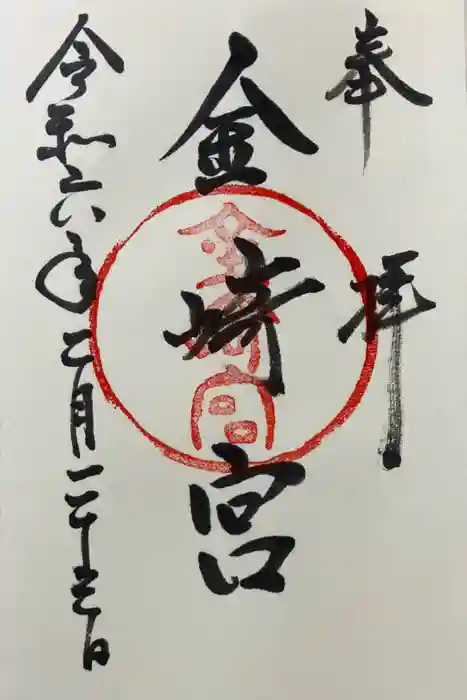 奉拝
金崎宮
金崎宮
令和六年二月二十三日